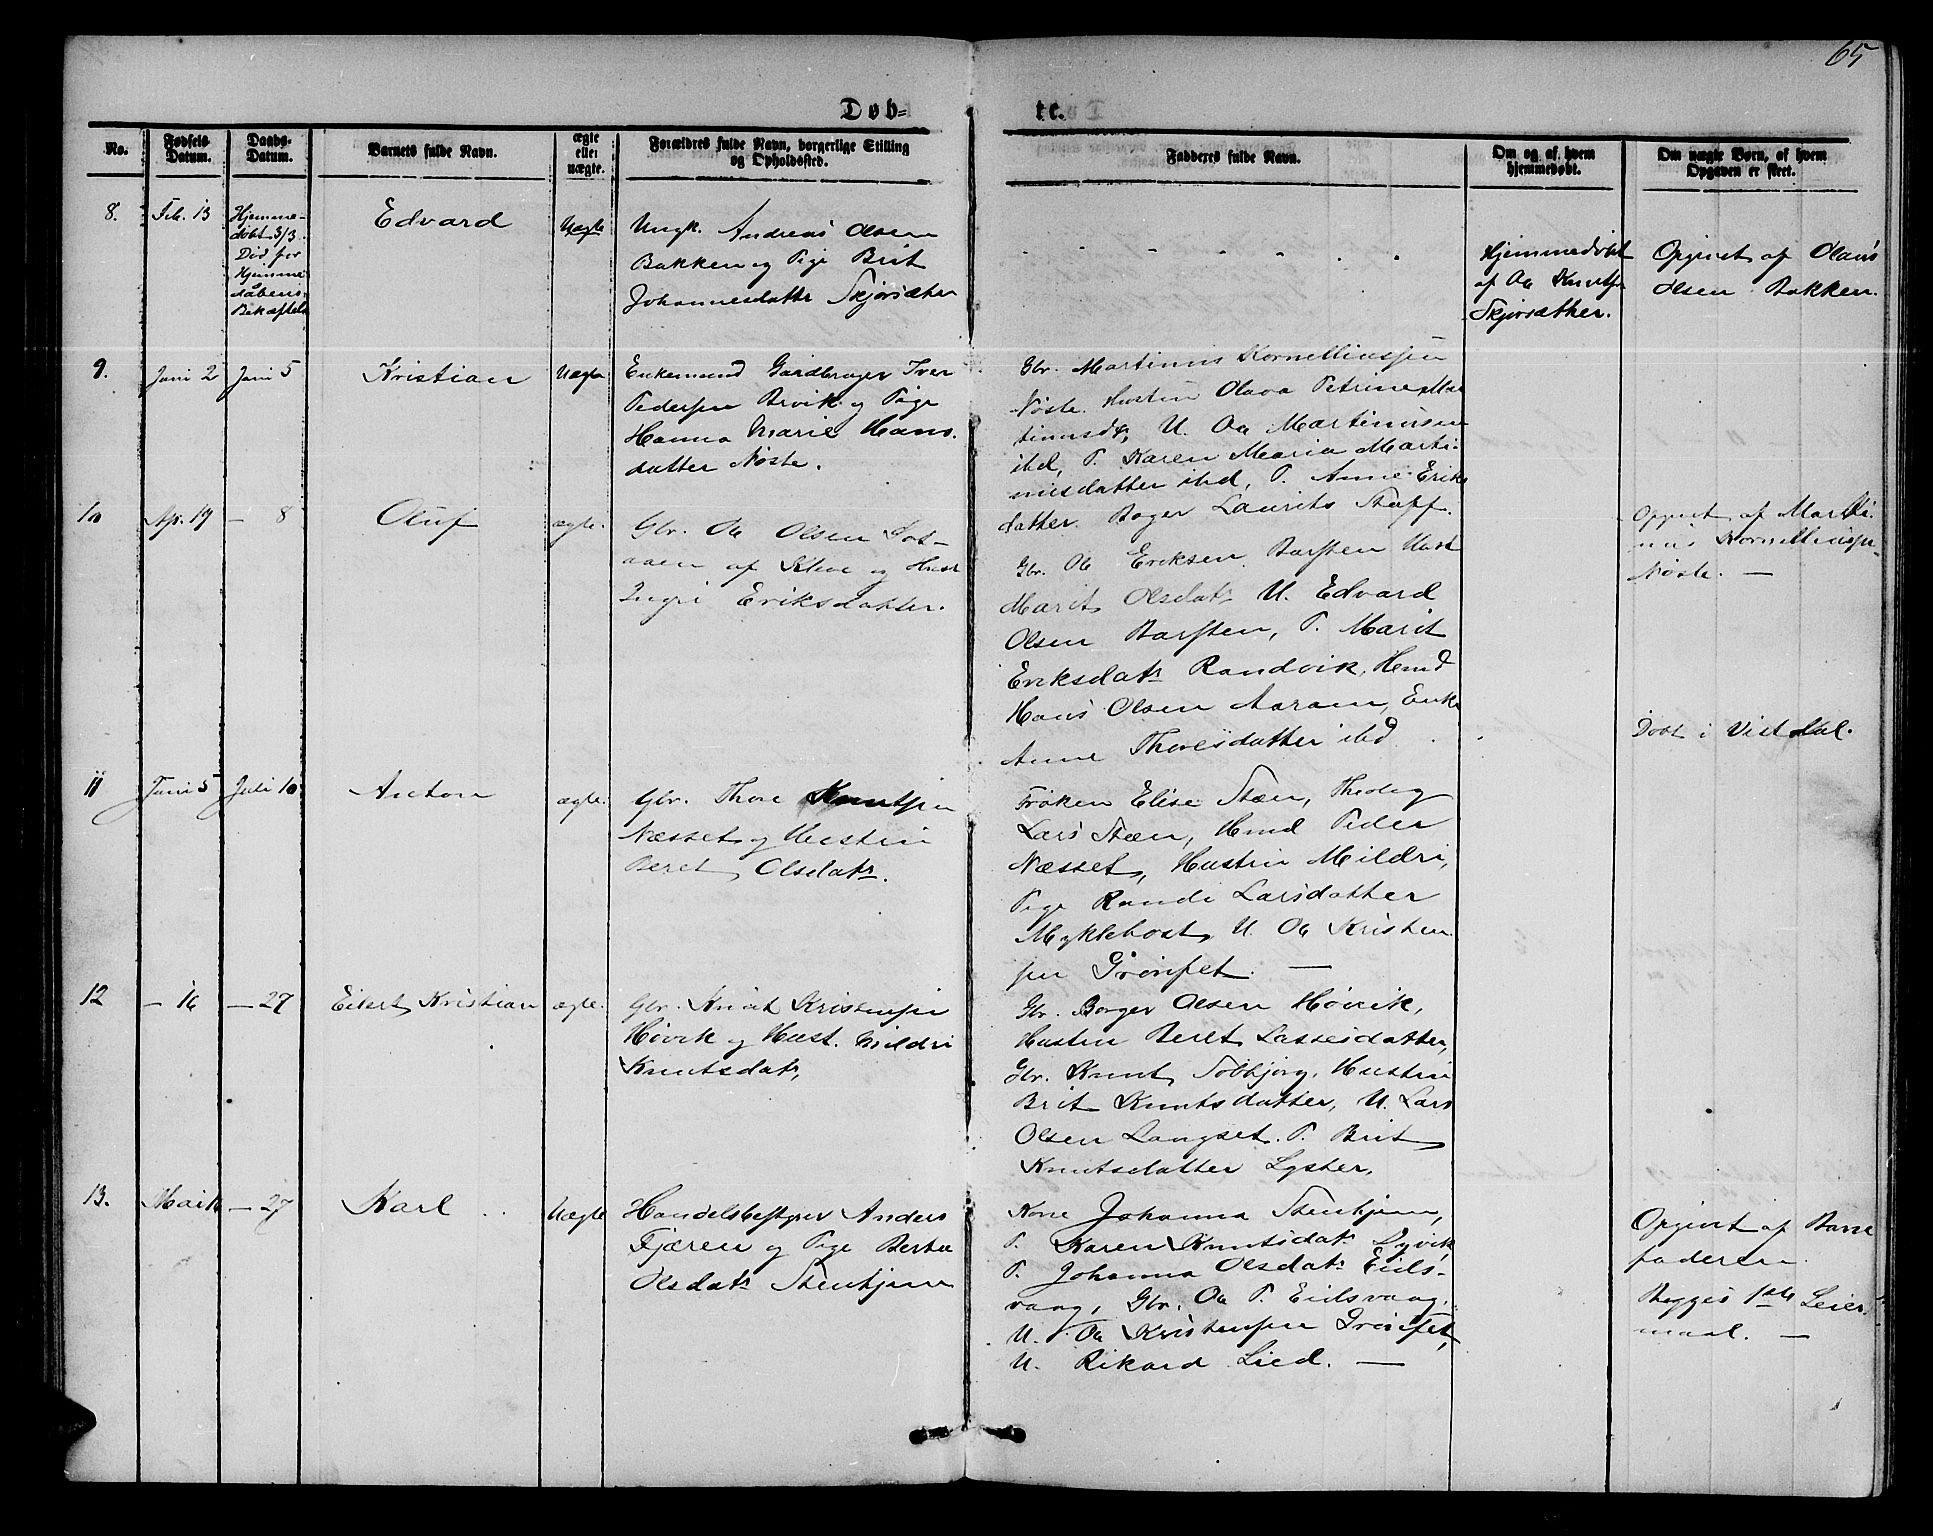 65
Døb=
te.
No.
Fødsels Datum.
Daabs-Datum.
Barnets fulde Navn.
ægte eller uægte.
Forældres fulde Navn, borgerlige Stilling
og Opholdssted.
Fadderes fulde Navn.
Om og af hvem
hjemmedøbt.
Om uægte Børn, af hvem
Opgaven er skeet.
8.
Feb. 13
Hjemme-
døbt 3/3.
Død før
Hjemme
dåbens
Bekæftels
Edvard
Uægte
Ungk. Andreas Olsen
Bakken og Pige Brit
Johannesdatter Skjørsæther
Hjemmedøbt
af Ole Knutsen
Skjørsæther.
Opgivet af Olaus
Olsen Bakken.
9.
Juni 2
Juni 5
Kristian
Uægte
Enkemand Gårdbruger Iver
Pedersen Brvik og Pige
Hanna Marie Hans-
datter Nøste.
Gbr. Martinus Kornelliussen
Nøste. Hustru Olava Petrine Mar
tinusdtr, U. Ole Martinusen
ibd, P. Karen Maria Marti-
nusdatter ibd, P. Anne Eriks
datter. Bager Laurits Stapf.
Opgivet af Marti
nus Kornelliussen
Nøste. —
10
Ap. 19
— 8
Oluf
ægte.
Gbr. Ole Olsen
af Kleve og Hust
Ingri Eriksdatter.
Gbr. Ole Eriksen Barsten Hust
Marit Olsdatr U. Edvard
Olsen Barsten, P. Marit
Eriksdatr Randvik, Hmd
Hans Olsen Aaram, Enke
Anne Thoresdatter ibd
Døbt i Vistdal.
11
Juni 5
Juli 10
Anton
ægte.
Gbr. Thore Knutsen
Næsset og Hustru
Beret Olsdatr.
Frøken Elise Stæn, Theolog
Lars Stæn, Hmd Peder
Næsset, Hustru Mildri,
Pige Randi Larsdatter
Myklebost, U. Ole Kristen
sen Grønset. —
12
— 16
— 27
Eilert Kristian
ægte.
Gbr. Knut Kristensen
Høvik og Hust. Mildri
Knutsdatr
Gbr. Borger Olsen Høvik,
Hustru Beret Lassesdatter,
Gbr. Knut Tolbjørg. Hustru
Brit Knutsdatter, U. Lars
Olsen Langset. P. Brit
Knutsdatter Lyster.
13.
— 27
Karl
Uægte
Handelsbestyrer Anders
Fjæren og Pige Berta
Olsdatr Stenhjem
Kone Johanna Stenhjem,
P. Karen Knutsdatr Lyvik
P. Johanna Olsdatr Eids-
vaag, Gbr. Ole P. Eidsvaag.
U. Ole Kristensen Grønset,
U. Rikard Lied. —
Opgivet af Barne
faderen.
Begges 1ste Leier
maal. —